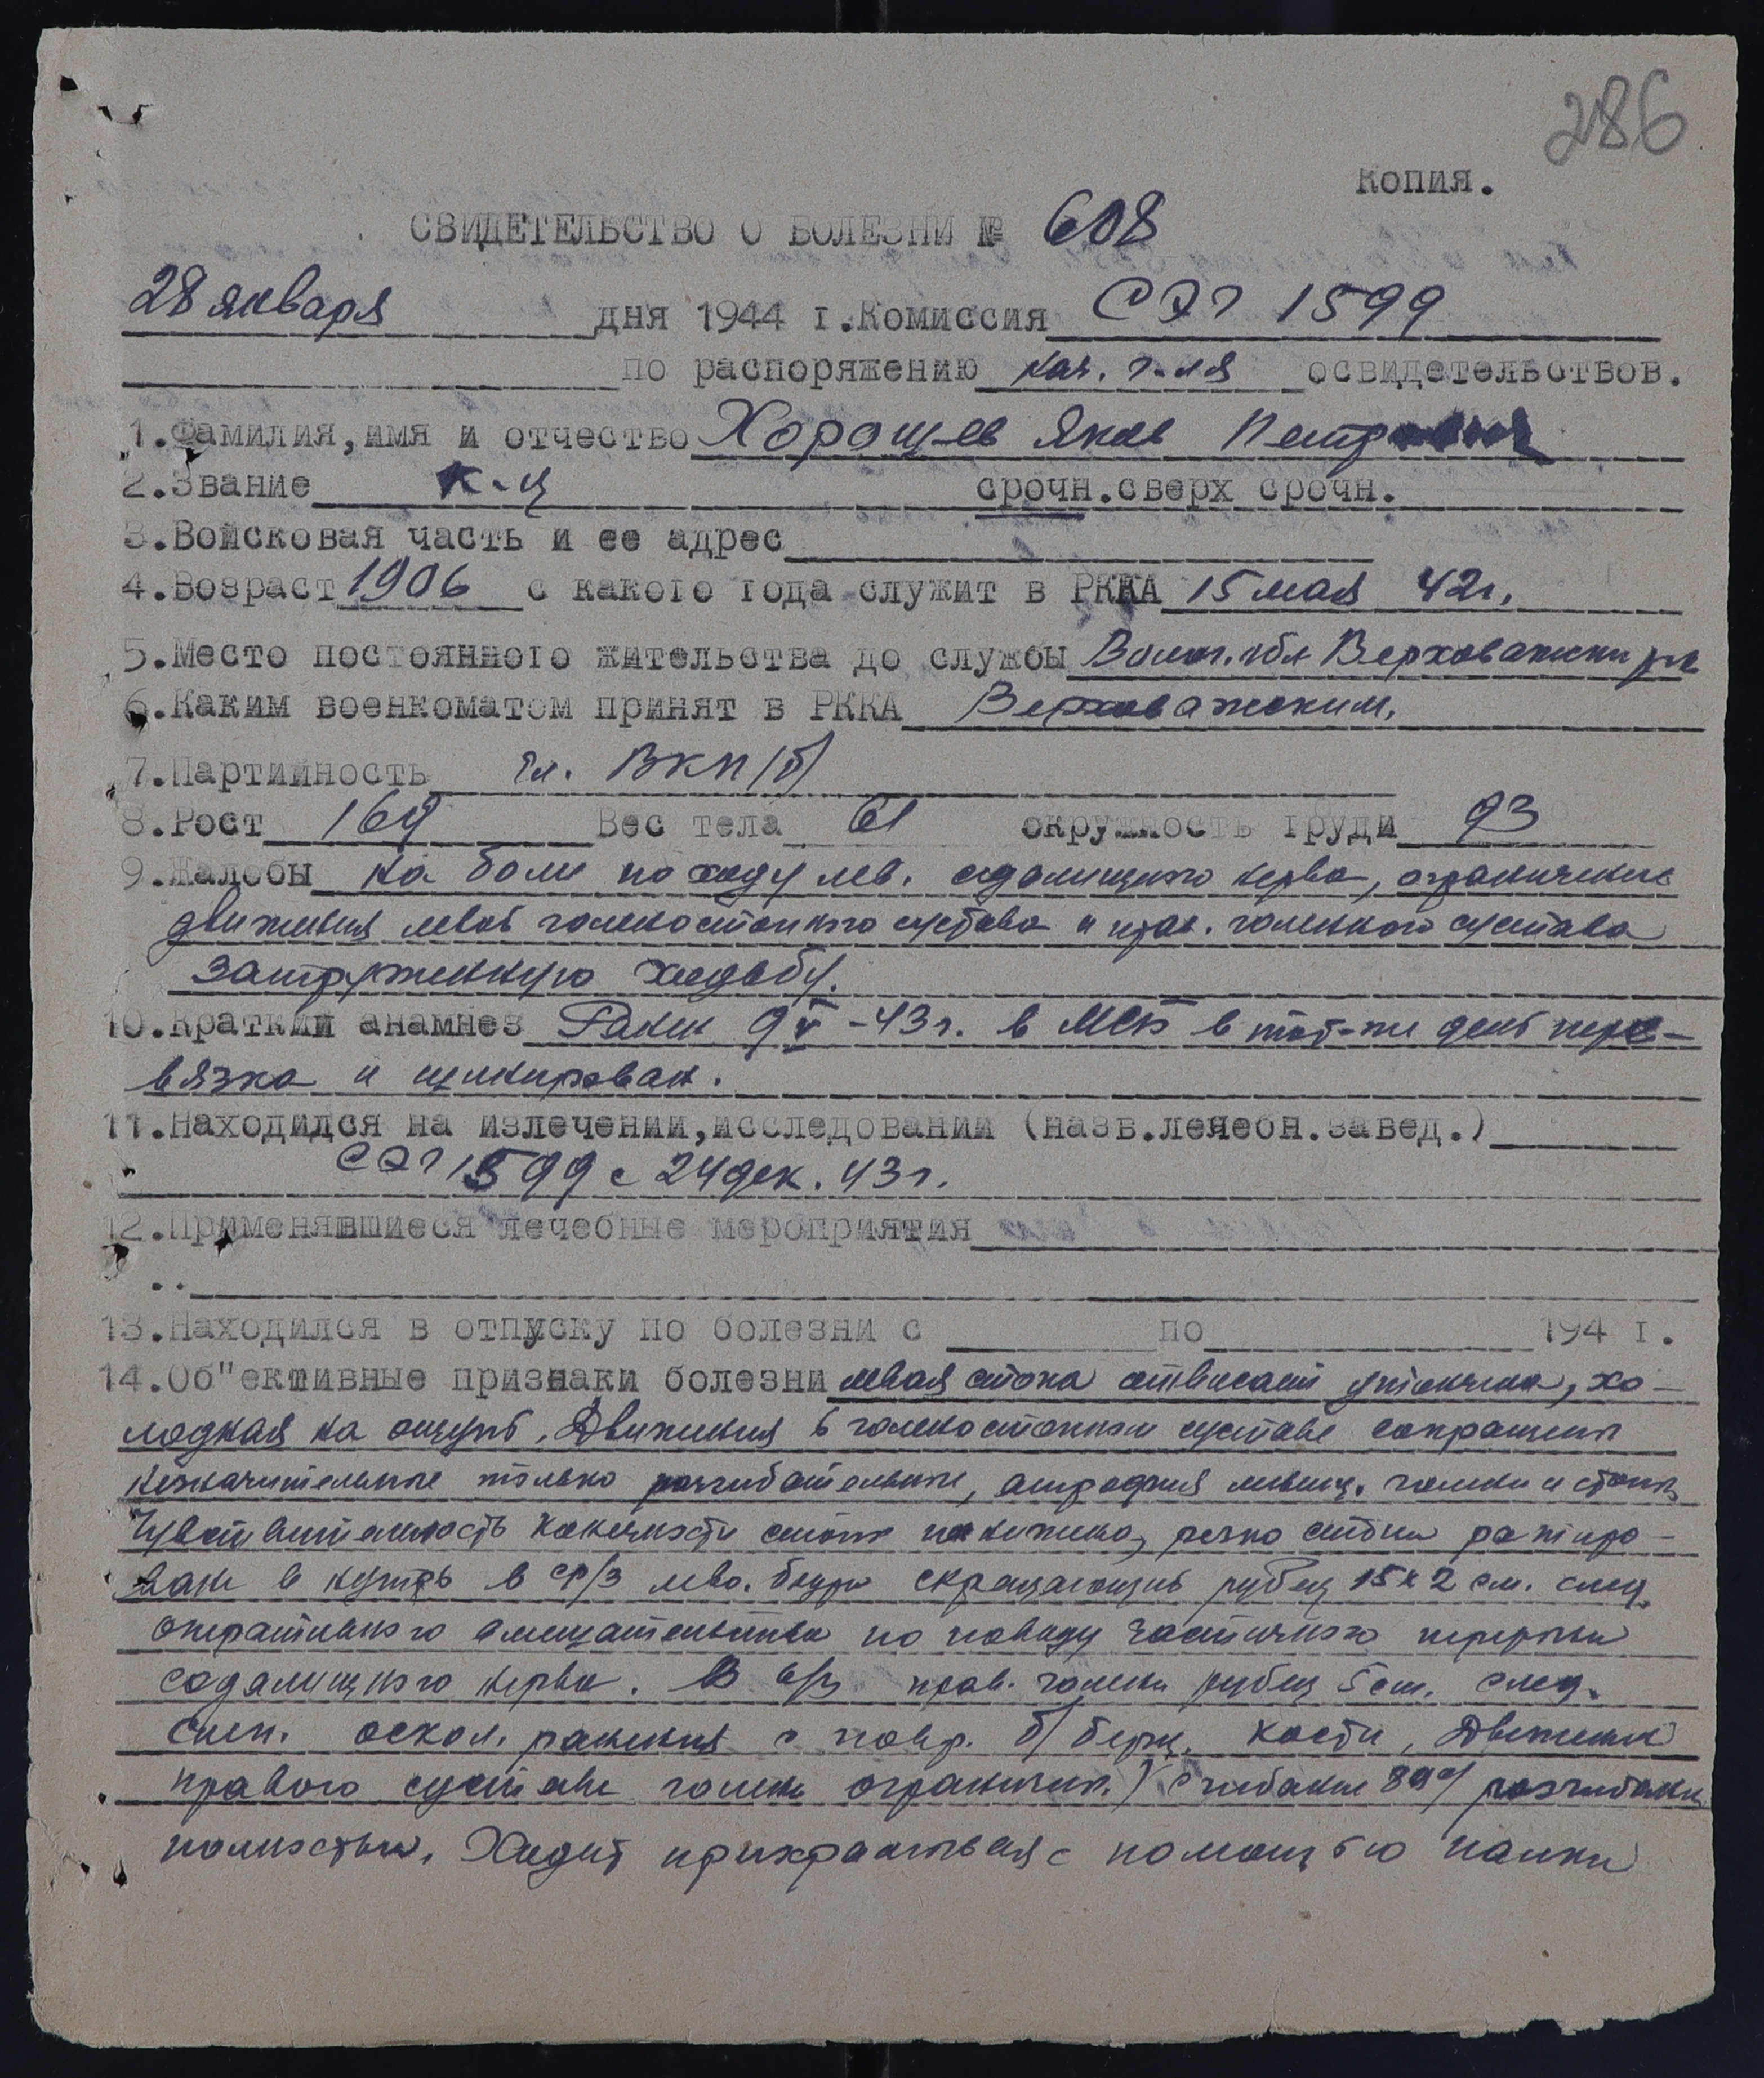 286
Копия.
СВИДЕТЕЛЬСТВО О БОЛЕЗНИ № 608
28 января дня 1944 г. Комиссия СЭГ 1599
по распоряжению нач. г-ля освидетельствов.
1. Фамилия, имя и отчество Хорошев Яков Петрович
2. Звание к-ц срочн. сверх срочн.
3. Войсковая часть и ее адрес
4. Возраст 1906 с какого года служит в РККА 15 мая 42г.
5. Место постоянного жительства до службы Волог. обл Верховажский р-н
6. Каким военкоматом принят в РККА Верховажским.
7. Партийность чл. ВКП/б/
8. Рост 169 Вес тела 61 окружность груди 93
9. Жалобы на боли по ходу лев. седалищного нерва, ограничение
движения левого голеностопного сустава и прав. голенного сустава
затрудненную ходьбу.
10. Краткий анамнез Ранен 9 V - 43 г. в МСБ в тот-же день пере-
вязка и шинирован.
11. Находился на излечении, исследовании (назв. лечебн. завед.)
СЭГ 1599 с 24 дек. 43 г.
12. Применявшиеся лечебные мероприятия
13. Находился в отпуску по болезни с по 194 г.
14. Об"ективные признаки болезни левая стопа отвисает утончена, хо-
лодная на ощупь. Движения в голеностопном суставе сокращены
незначительные только разгибательные, атрофия мышц. голени и стопы
Чувствительность конечности стопы понижена, резко стопа
в ср/3 лев. бедра рубец 15 х 2 см. след.
оперативного вмешательства по поводу частичного перерыва
седалищного нерва. В в/3 прав. голени рубец 5 см. след.
слеп. оскол. ранения с повр. б/берц. кости, Движения
правого сустава голени огранич. сгибание разгибание
полностью. Ходит прихрамывая с помощью палки